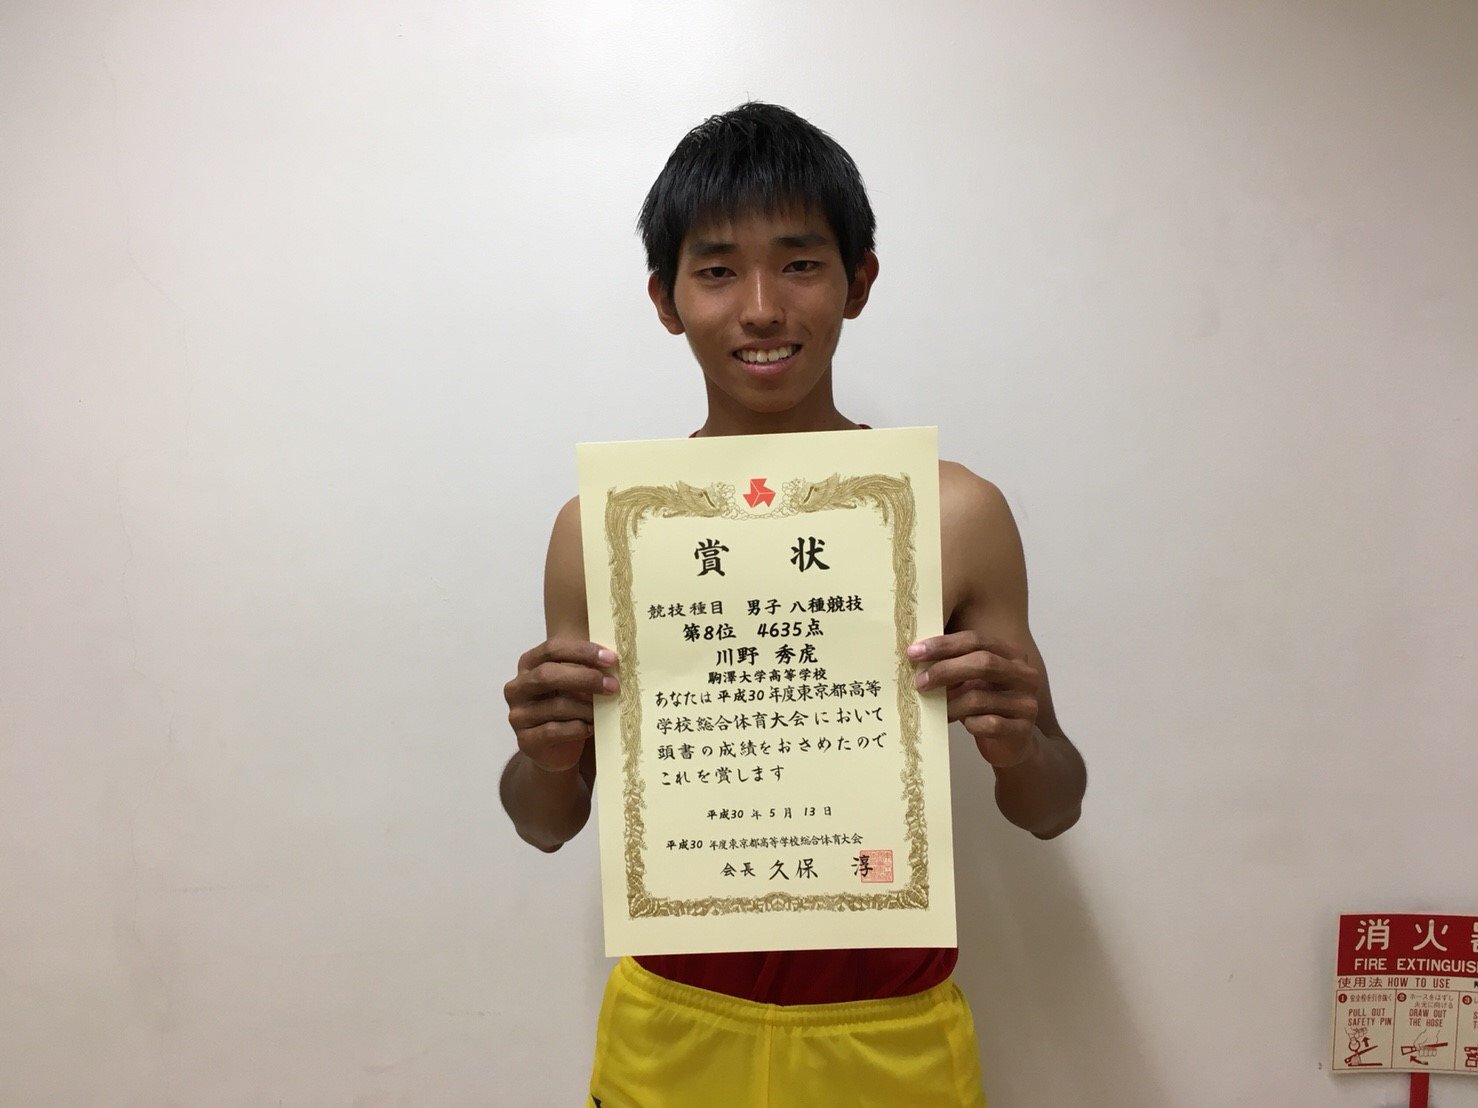 賞 状
競技種目 男子 八種競技
第8位 4635点
川野 秀虎
駒澤大学高等学校
あなたは平成30年度東京都高等
学校総合体育大会において
頭書の成績をおさめたので
これを賞します
平成30年5月13日
平成30年度東京都高等学校総合体育大会
会長 久保 淳
消火
FIRE EXTINGUIS
使用法 HOW TO USE
1 安全栓を引き抜く
PULL OUT
SAFETY PIN
2 ホースをはずし
火元に向ける
DRAW OUT
THE HOSE
3